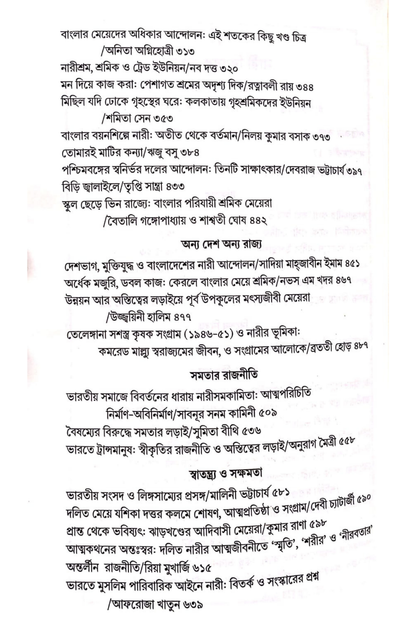 বাংলার মেয়েদের অধিকার আন্দোলন: এই শতকের কিছু খণ্ড চিত্র
/অনিতা অগ্নিহোত্রী ৩১৩
নারীশ্রম, শ্রমিক ও ট্রেড ইউনিয়ন/নব দত্ত ৩২০
মন দিয়ে কাজ করা: পেশাগত শ্রমের অদৃশ্য দিক/রত্নাবলী রায় ৩৪৪
মিছিল যদি ঢোকে গৃহস্থের ঘরে: কলকাতায় গৃহশ্রমিকদের ইউনিয়ন
/শমিতা সেন ৩৫৩
বাংলার বয়নশিল্পে নারী: অতীত থেকে বর্তমান/নিলয় কুমার বসাক ৩৭৩
তোমারই মাটির কন্যা/ঋজু বসু ৩৮৪
পশ্চিমবঙ্গের স্বনির্ভর দলের আন্দোলন: তিনটি সাক্ষাৎকার/দেবরাজ ভট্টাচার্য ৩৯৭
বিড়ি জ্বালাইলে/তৃপ্তি সান্ত্রা ৪৩৩
স্কুল ছেড়ে ভিন রাজ্যে: বাংলার পরিযায়ী শ্রমিক মেয়েরা
/বৈতালি গঙ্গোপাধ্যায় ও শাশ্বতী ঘোষ ৪৪২
অন্য দেশ অন্য রাজ্য
দেশভাগ, মুক্তিযুদ্ধ ও বাংলাদেশের নারী আন্দোলন/সাদিয়া মাহ্‌জাবীন ইমাম ৪৫১
অর্ধেক মজুরি, ডবল কাজ: কেরলে বাংলার মেয়ে শ্রমিক/নভস এম খদর ৪৬৭
উন্নয়ন আর অস্তিত্বের লড়াইয়ে পূর্ব উপকূলের মৎস্যজীবী মেয়েরা
/উজ্জয়িনী হালিম ৪৭৭
তেলেঙ্গানা সশস্ত্র কৃষক সংগ্রাম (১৯৪৬-৫১) ও নারীর ভূমিকা:
কমরেড মাল্লু স্বরাজ্যমের জীবন, ও সংগ্রামের আলোকে/ব্রততী হোড় ৪৮৭
সমতার রাজনীতি
ভারতীয় সমাজে বিবর্তনের ধারায় নারীসমকামিতা: আত্মপরিচিতি
নির্মাণ-অবিনির্মাণ/সাবনূর সনম কামিনী ৫০৯
বৈষম্যের বিরুদ্ধে সমতার লড়াই/সুমিতা বীথি ৫৩৬
ভারতে ট্রান্সমানুষ: স্বীকৃতির রাজনীতি ও অস্তিত্বের লড়াই/অনুরাগ মৈত্রী ৫৫৮
স্বাতন্ত্র্য ও সক্ষমতা
ভারতীয় সংসদ ও লিঙ্গসাম্যের প্রসঙ্গ/মালিনী ভট্টাচার্য ৫৮১
দলিত মেয়ে যশিকা দত্তর কলমে শোষণ, আত্মপ্রতিষ্ঠা ও সংগ্রাম/দেবী চ্যাটার্জী ৫৯০
প্রান্ত থেকে ভবিষ্যৎ: ঝাড়খণ্ডের আদিবাসী মেয়েরা/কুমার রাণা ৫৯৮
আত্মকথনের অন্তঃস্বর: দলিত নারীর আত্মজীবনীতে ‘স্মৃতি’, ‘শরীর’ ও ‘নীরবতার’
অন্তর্লীন রাজনীতি/রিয়া মুখার্জি ৬১৫
ভারতে মুসলিম পারিবারিক আইনে নারী: বিতর্ক ও সংস্কারের প্রশ্ন
/আফরোজা খাতুন ৬৩৯